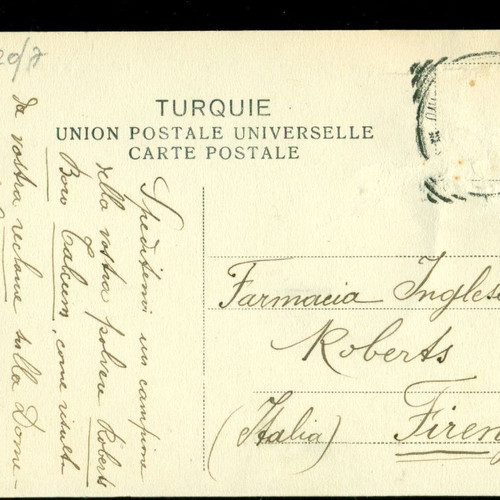 20/7
TURQUIE
UNION POSTALE UNIVERSELLE
CARTE POSTALE
Speditemi un campione
della vostra polvere Roberts
Boro Talcum, come risult
da vostra reclame sulla Dome-
Farmacia Inglese
Roberts
(Italia) Firen